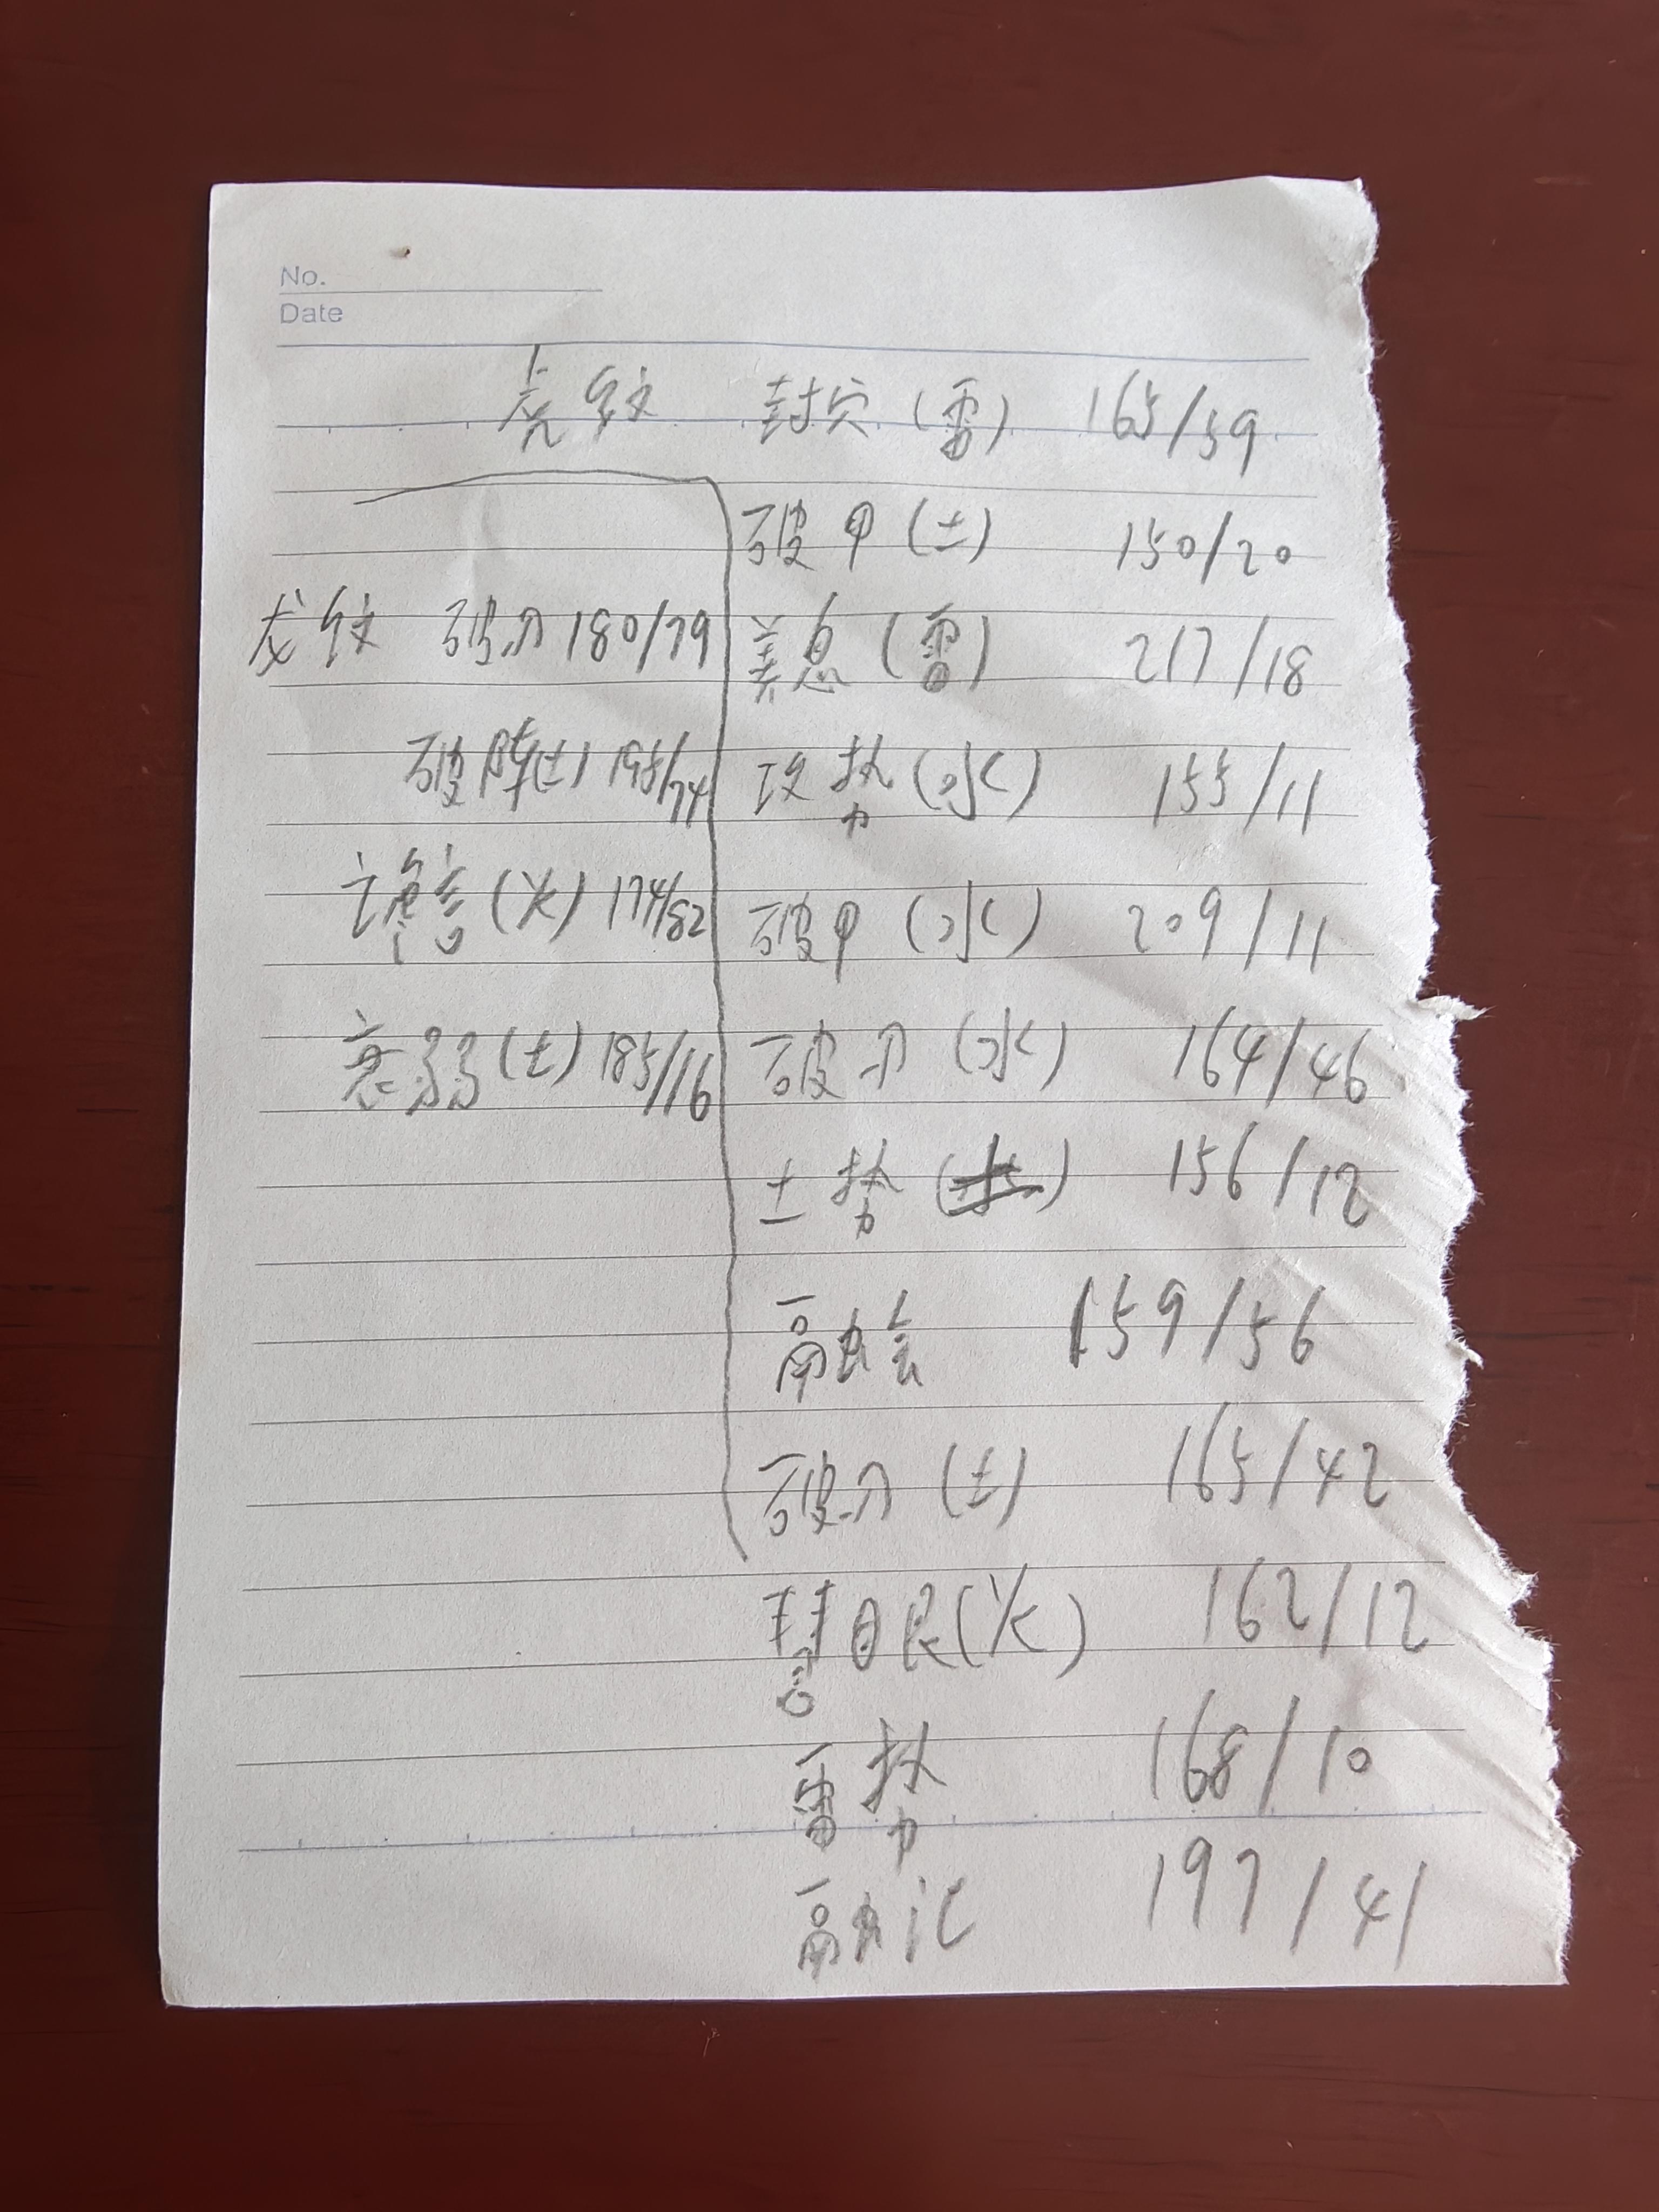 No.
Date
封穴(雷) 165/59
破甲(土) 150/20
养息(雷) 217/18
攻势(水) 155/11
破甲(水) 209/11
破尔(水) 164/46
土势 156/12
融会 159/56
破尔(土) 165/42
慧眼(火) 162/12
雷势 168/10
融汇 197/41
180/79
破阵(土) 195/74
(火) 174/82
衰弱(土) 185/16